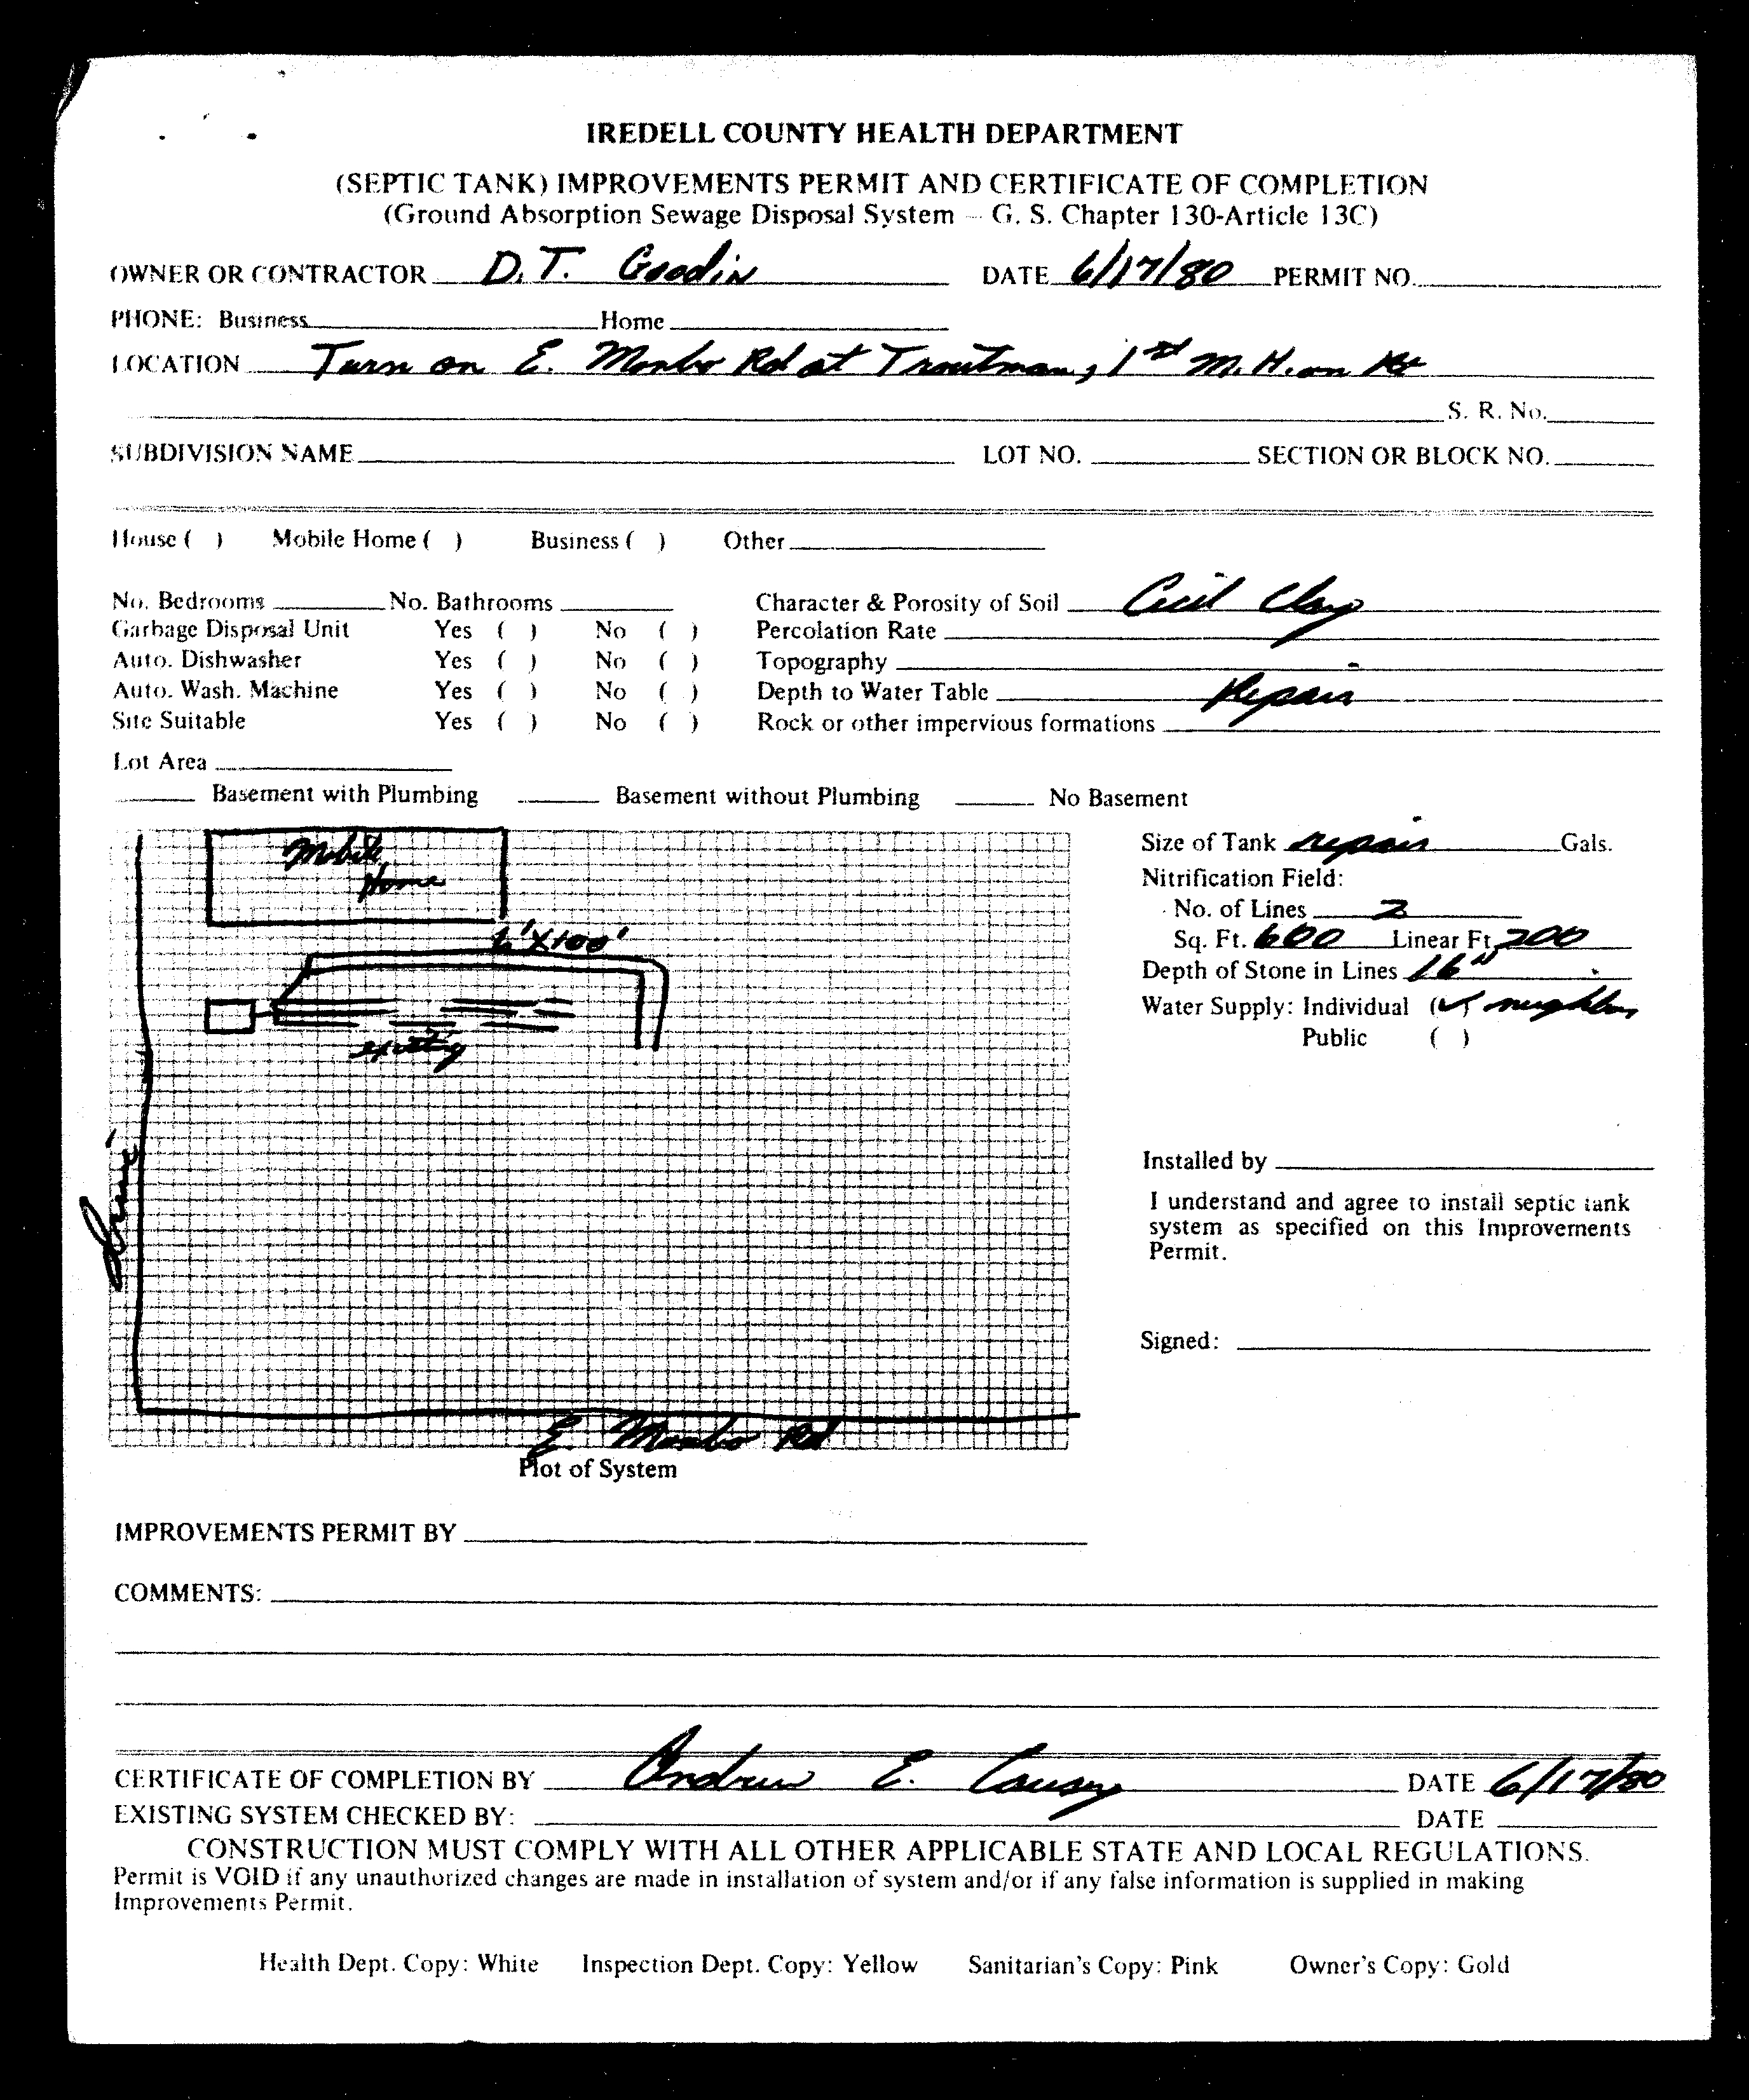 IREDELL COUNTY HEALTH DEPARTMENT
(SEPTIC TANK) IMPROVEMENTS PERMIT AND CERTIFICATE OF COMPLETION
(Ground Absorption Sewage Disposal System – G. S. Chapter 130-Article 13C)
OWNER OR CONTRACTOR D.T. Goodin DATE 6/17/80 PERMIT NO.
PHONE: Business Home
LOCATION Turn on E. Monbo Rd at Troutman, 1st M.H. on Rt
S. R. No.
SUBDIVISION NAME LOT NO. SECTION OR BLOCK NO.
House ( ) Mobile Home ( ) Business ( ) Other
No. Bedrooms No. Bathrooms Character & Porosity of Soil Cecil Clay
Garbage Disposal Unit Yes ( ) No ( ) Percolation Rate
Auto. Dishwasher Yes ( ) No ( ) Topography
Auto. Wash. Machine Yes ( ) No ( ) Depth to Water Table Repair
Site Suitable Yes ( ) No ( ) Rock or other impervious formations
Lot Area
Basement with Plumbing Basement without Plumbing No Basement
Mobile
Home
X100'
existing
Drive
E. Monbo Rd
Plot of System
Size of Tank repair Gals.
Nitrification Field:
No. of Lines 2
Sq. Ft. 600 Linear Ft. 200
Depth of Stone in Lines 16"
Water Supply: Individual (✓) neighbor
Public ( )
Installed by
I understand and agree to install septic tank
system as specified on this Improvements
Permit.
Signed:
IMPROVEMENTS PERMIT BY
COMMENTS:
CERTIFICATE OF COMPLETION BY Andrew E. Causey DATE 6/17/80
EXISTING SYSTEM CHECKED BY: DATE
CONSTRUCTION MUST COMPLY WITH ALL OTHER APPLICABLE STATE AND LOCAL REGULATIONS.
Permit is VOID if any unauthorized changes are made in installation of system and/or if any false information is supplied in making
Improvements Permit.
Health Dept. Copy: White Inspection Dept. Copy: Yellow Sanitarian's Copy: Pink Owner's Copy: Gold